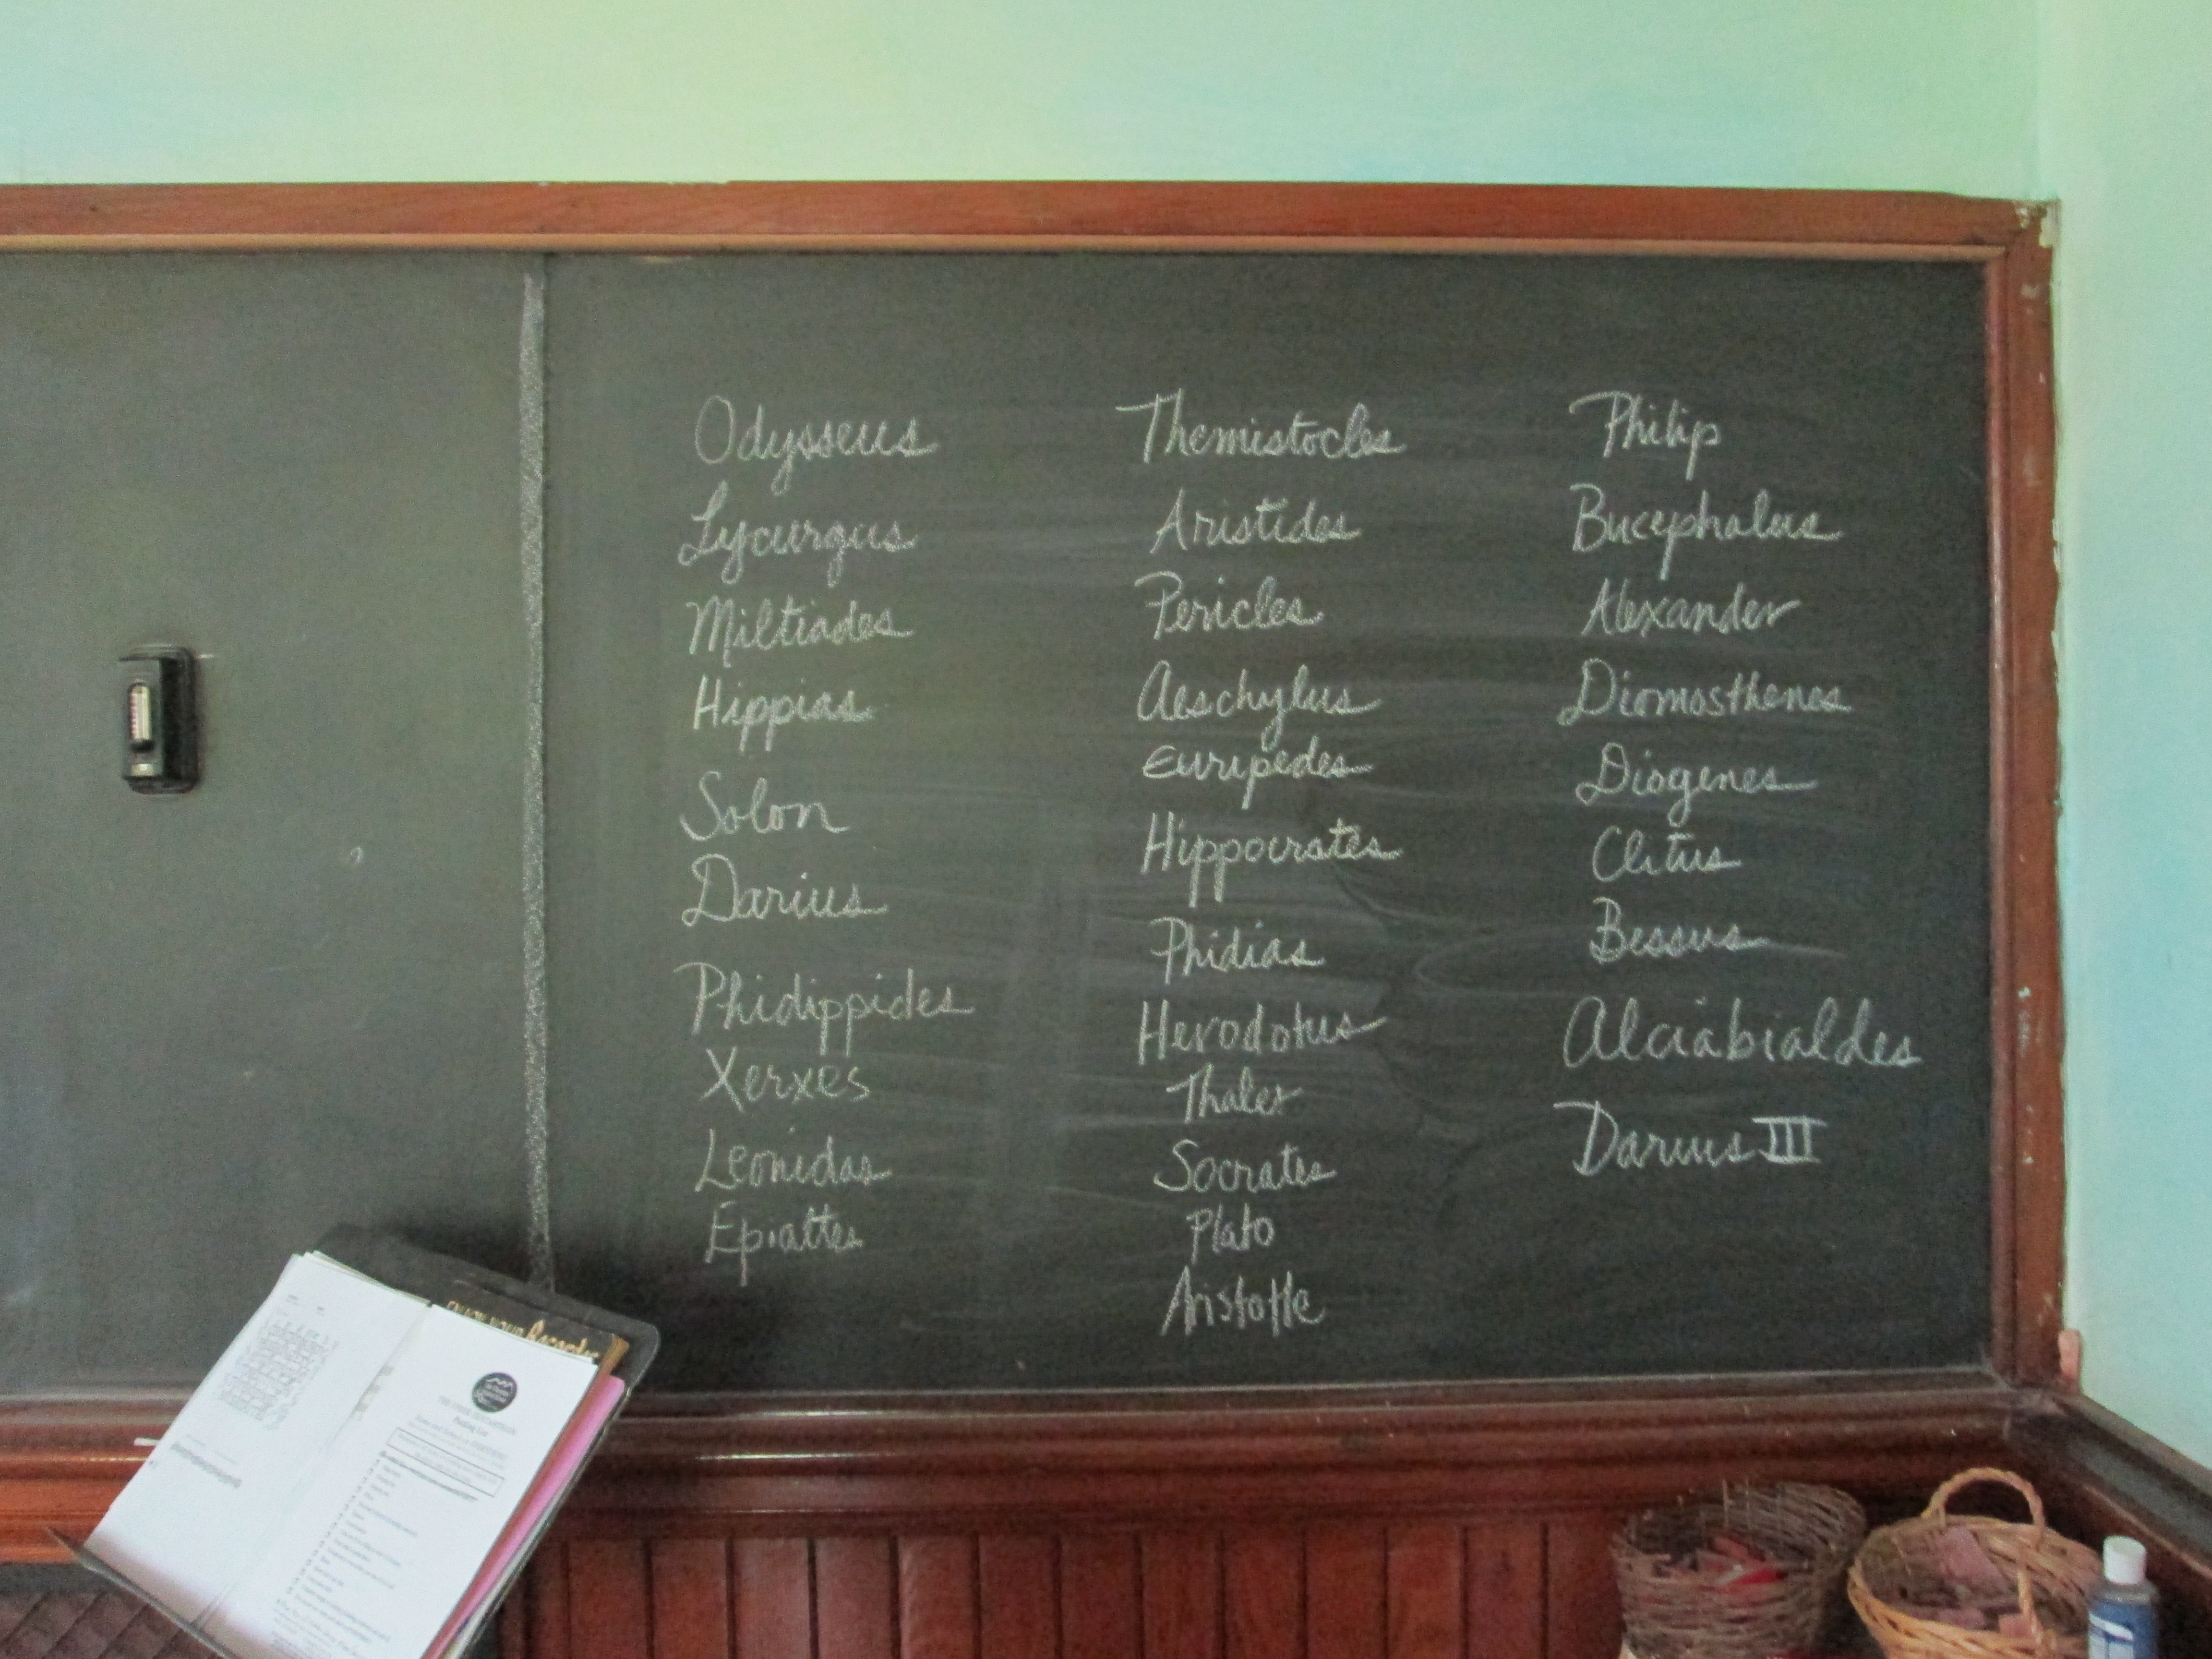 Odysseus
Lycurgus
Miltiades
Hippias
Solon
Darius
Phidippides
Xerxes
Leonidas
Epialtes
Themistocles
Aristides
Pericles
Aeschylus
Euripedes
Hippocrates
Phidias
Herodotus
Thales
Socrates
Plato
Aristotle
Philip
Bucephalus
Alexander
Diomosthenes
Diogenes
Clitus
Bessus
Alciabialdes
Darius III
Enjoy your Recorder
Packing List